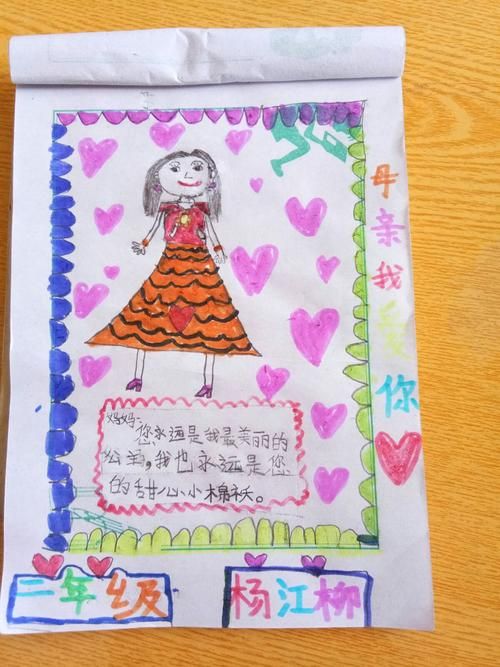 母亲我爱你
妈妈:
您永远是我最美丽的
公主，我也永远是您
的甜心小棉袄。
二年级
杨江柳